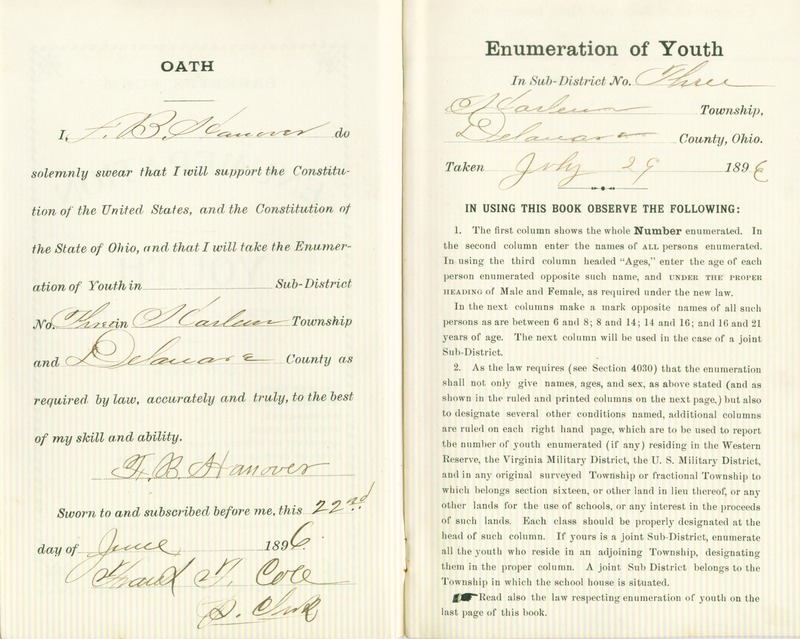 OATH
I, F. B. Hanover do
solemnly swear that I will support the Constitu-
tion of the United States, and the Constitution of
the State of Ohio, and that I will take the Enumer-
ation of Youth in Sub-District
No. Three in Harlem Township
and Delaware County as
required by law, accurately and truly, to the best
of my skill and ability.
F. B. Hanover
Sworn to and subscribed before me, this 22nd
day of June 1896.
Frank T. Cole
D. Clerk
Enumeration of Youth
In Sub-District No. Three
Harlem Township,
Delaware County, Ohio.
Taken July 29 1896
IN USING THIS BOOK OBSERVE THE FOLLOWING:
1. The first column shows the whole Number enumerated. In
the second column enter the names of ALL persons enumerated.
In using the third column headed "Ages," enter the age of each
person enumerated opposite such name, and UNDER THE PROPER
HEADING of Male and Female, as required under the new law.
In the next columns make a mark opposite names of all such
persons as are between 6 and 8; 8 and 14; 14 and 16; and 16 and 21
years of age. The next column will be used in the case of a joint
Sub-District.
2. As the law requires (see Section 4030) that the enumeration
shall not only give names, ages, and sex, as above stated (and as
shown in the ruled and printed columns on the next page,) but also
to designate several other conditions named, additional columns
are ruled on each right hand page, which are to be used to report
the number of youth enumerated (if any) residing in the Western
Reserve, the Virginia Military District, the U. S. Military District,
and in any original surveyed Township or fractional Township to
which belongs section sixteen, or other land in lieu thereof, or any
other lands for the use of schools, or any interest in the proceeds
of such lands. Each class should be properly designated at the
head of such column. If yours is a joint Sub-District, enumerate
all the youth who reside in an adjoining Township, designating
them in the proper column. A joint Sub District belongs to the
Township in which the school house is situated.
Read also the law respecting enumeration of youth on the
last page of this book.